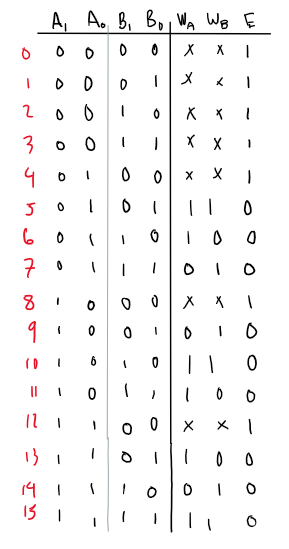 A₁ A₀ B₁ B₀ W_A W_B E
0 0 0 0 0 x x 1
1 0 0 0 1 x x 1
2 0 0 1 0 x x 1
3 0 0 1 1 x x 1
4 0 1 0 0 x x 1
5 0 1 0 1 1 1 0
6 0 1 1 0 1 0 0
7 0 1 1 1 0 1 0
8 1 0 0 0 x x 1
9 1 0 0 1 0 1 0
10 1 0 1 0 1 1 0
11 1 0 1 1 1 0 0
12 1 1 0 0 x x 1
13 1 1 0 1 1 0 0
14 1 1 1 0 0 1 0
15 1 1 1 1 1 1 0